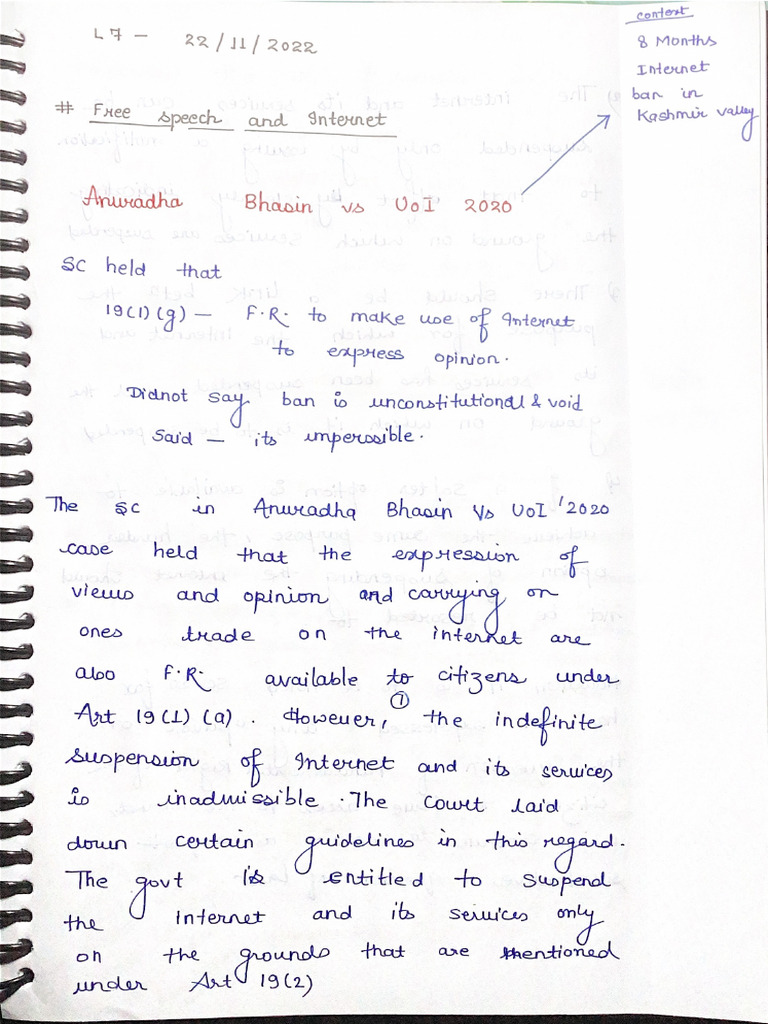 L7 - 22/11/2022
context
8 Months
Internet
ban in
Kashmir valley
# Free speech and Internet
Anuradha Bhasin vs UoI 2020
SC held that
19(1)(g) - F.R. to make use of Internet
to express opinion.
Didnot say ban is unconstitutional & void
Said - its impossible.
The SC in Anuradha Bhasin Vs UoI '2020
case held that the expression of
views and opinion and carrying on
ones trade on the internet are
also F.R. available to citizens under
Art 19(1)(a). However, ① the indefinite
suspension of Internet and its services
is inadmissible. The Court laid
down certain guidelines in this regard.
The govt is entitled to suspend
the Internet and its services only
on the grounds that are mentioned
under Art 19(2)